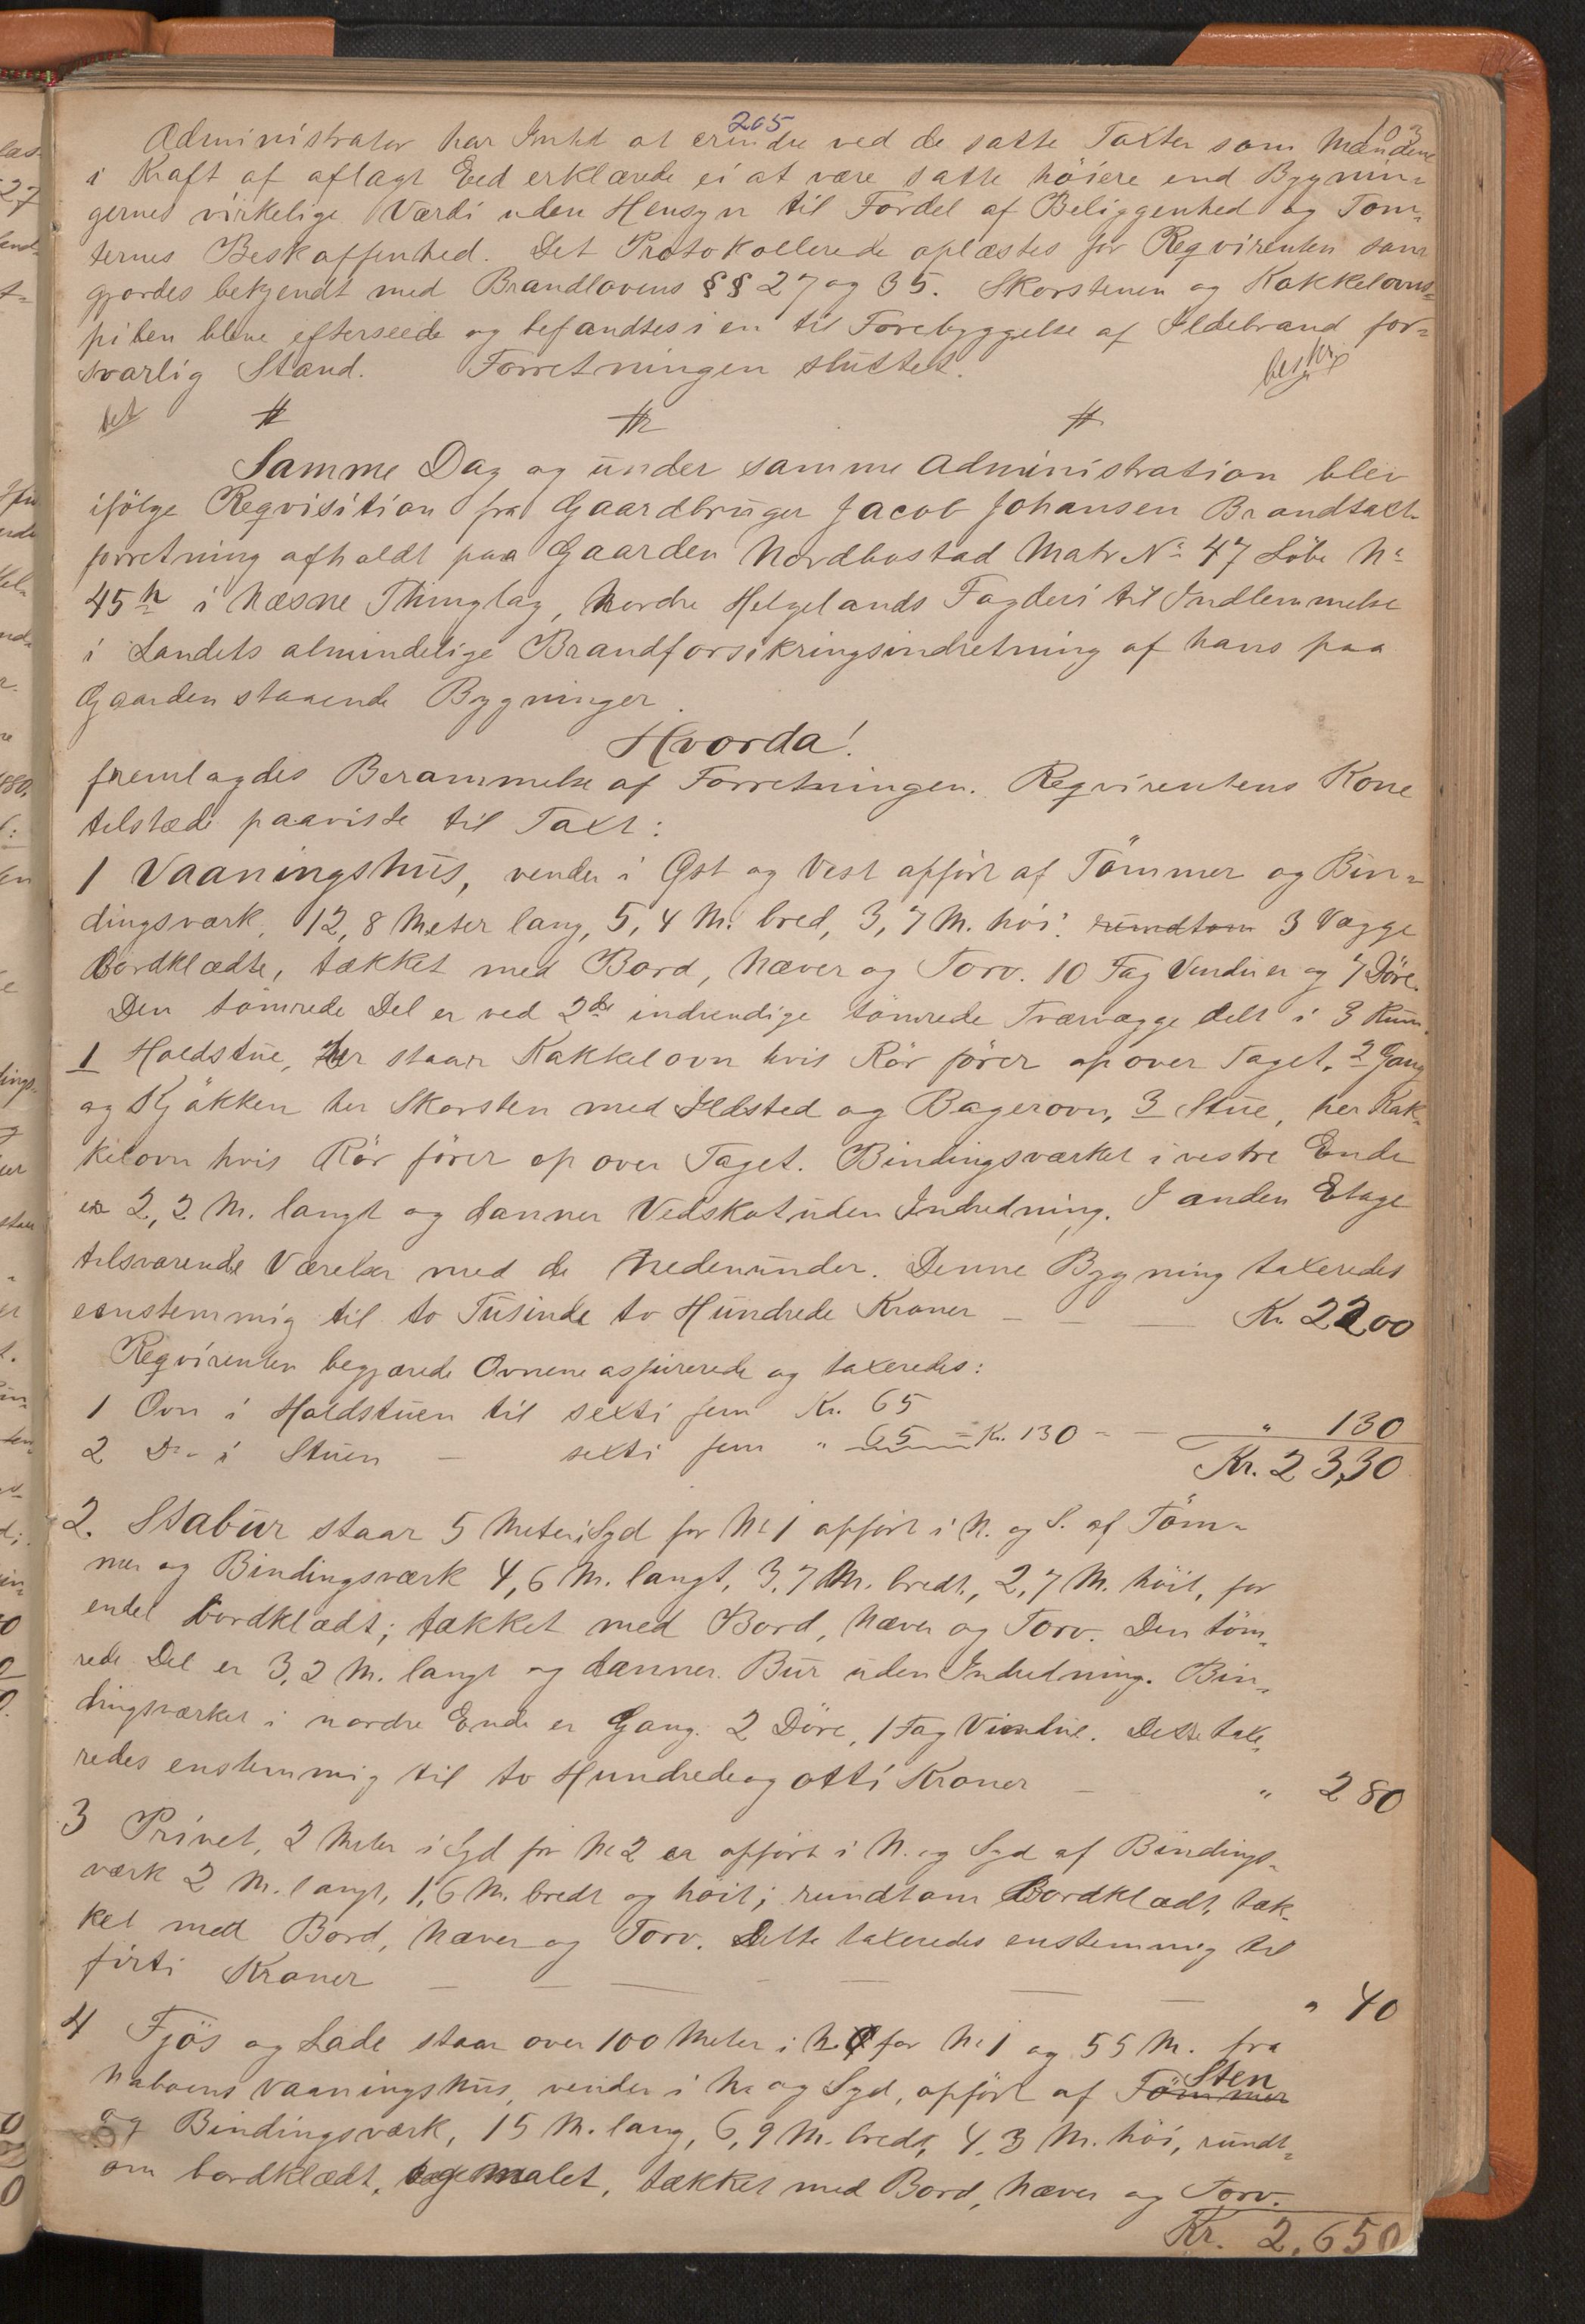 205
103
Administrator har Intet at erindre ved de satte Taxter som Mændene
i Kraft af aflagt Eed erklærede ei at være satte höiere end Bygnin=
gernes virkelige Værdi uden Hensyn til Fordel af Beliggenhed og Tom=
ternes Beskaffenhed. Det Protokollerede oplæstes for Reqvirenten som
gjordes bekjendt med Brandlovens §§ 27 og 35. Skorstenen og Kakkelovns=
piben bleve efterseede og befandtes i en til Forebyggelse af Ildebrand for=
svarlig Stand. Forretningen sluttet.
Samme Dag og under samme Administration blev
ifölge Reqvisition fra Gaardbruger Jacob Johansen Brandtaxt
forretning afholdt paa Gaarden Nordbostad Matr No 47 Löbe No
45h i Næsne Thinglag, Nordre Helgelands Fogderi til Indlemmelse
i Landets almindelige Brandforsikringsindretning af hans paa
Gaarden staaende Bygninger.
Hvorda!
fremlagdes Berammelse af Forretningen. Reqvirentens Kone
tilstæde paaviste til Taxt:
1 Vaaningshus, vender i Öst og Vest opfört af Tömmer og Bin=
dingsværk, 12,8 Meter lang, 5,4 M. bred, 3,7 M. höi. rundtom 3 Vægge
Bordklædte, tækket med Bord, Næver og Torv. 10 Fag Vinduer og 7 Döre.
Den tömrede Del er ved 2de indvendige tömrede Tværvægge delt i 3 Rum.
1 Holdstue, her staar Kakkelovn hvis Rör förer op over Taget. 2 Gang
og Kjökken her Skorsten med Ildsted og Bagerovn, 3 Stue, her Kak=
kelovn hvis Rör förer op over Taget. Bindingsværket i vestre Ende
er 2,2 M. langt og danner Vedskot uden Indredning. I anden Etage
tilsvarende Værelser med de Nedenunder. Denne Bygning taxeredes
eenstemmig til to Tusinde to Hundrede Kroner — — — Kr. 2200
Reqvirenten begjærede Ovnene assurerede og taxeredes:
1 Ovn i Holdstuen til sexti fem Kr. 65
2 Do i Stuen — sexti fem " 65 = Kr. 130 - — " 130
Kr. 2330
2. Stabur staar 5 Meter i Syd for No 1 opfört i N. og S. af Töm=
mer og Bindingsværk 4,6 M. langt, 3,7 M. bredt, 2,7 M. höit, for
endel bordklædt; tækket med Bord, Næver og Torv. Den töm=
rede Del er 3,2 M. langt og danner Bur uden Indredning. Bin=
dingsværket i nordre Ende er Gang. 2 Döre, 1 Fag Vindue. Dette taxe=
redes enstemmig til to Hundrede og otti Kroner — " 280
3 Privet, 2 Meter i Syd for No 2 er opfört i N. og Syd af Bindings=
værk 2 M. langt, 1,6 M. bredt og höit; rundtom Bordklædt, tæk=
ket med Bord, Næver og Torv. Dette taxeredes enstemmig til
firti Kroner — — — — — — — " 40
4 Fjös og Lade staar over 100 Meter i N. for No 1 og 55 M. fra
Naboens Vaaningshus, vender i N. og Syd, opfört af Tömmer Sten
og Bindingsværk, 15 M. lang, 6,9 M. bredt, 4,3 M. höi, rundt=
om bordklædt, malet, tækket med Bord, Næver og Torv.
Kr. 2,650